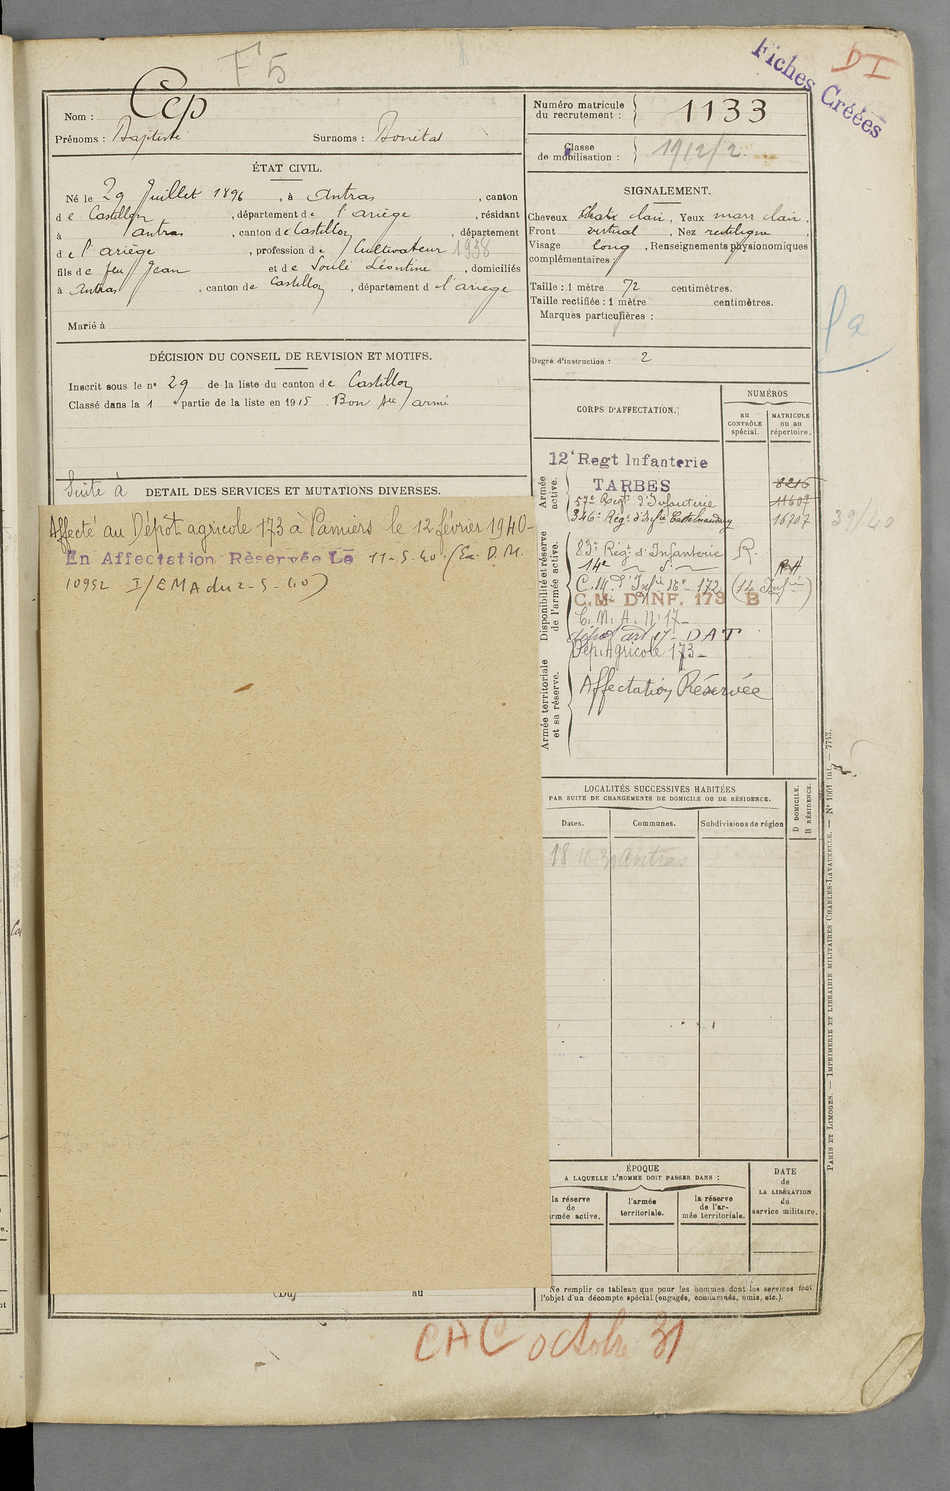 F5
Fiches Créées
DI
Nom : Cep
Prénoms : Baptiste Surnoms : Bonétat
Numéro matricule du recrutement : 1133
Classe de mobilisation : 1912/2
ÉTAT CIVIL.
Né le 29 Juillet 1896, à Antras, canton
de Castillon, département de l'ariège, résidant
à antras, canton de Castillon, département
de l'ariège, profession de Cultivateur 1938
fils de feu Jean et de Souli Léontine, domiciliés
à Antras, canton de Castillon, département d l'ariège
Marié à
SIGNALEMENT.
Cheveux chatx clair, Yeux marr clair,
Front vertical, Nez rectiligne,
Visage long, Renseignements physionomiques
complémentaires :
Taille : 1 mètre 72 centimètres.
Taille rectifiée : 1 mètre centimètres.
Marques particulières :
Degré d'instruction : 2
DÉCISION DU CONSEIL DE REVISION ET MOTIFS.
Inscrit sous le n° 29 de la liste du canton de Castillon
Classé dans la 1 e partie de la liste en 1915 Bon Sce armé
Suite à DETAIL DES SERVICES ET MUTATIONS DIVERSES.
Affecté au Dépôt agricole 173 à Pamiers le 12 février 1940-
En Affectation Réservée Le 11-5-40 (Ex. D.M.
10952 I/EMA du 2-5-40)
CORPS D'AFFECTATION.
NUMÉROS
au CONTRÔLE spécial.
MATRICULE ou au répertoire.
Armée active.
12e Regt Infanterie
TARBES 8216
57e Régt d'Infanterie 11607
346e Rég. d'Infie Castelnaudary 16707
39/40
Disponibilité et réserve de l'armée active.
83e Rég. d'Infanterie R.
14e
C.M. d'Infie 16e - 173 (14 Infie)
C.M. D'INF. 173 B
C.M.A. N°17-
dépôt art 17- DAT
Dép. Agricole 173-
Armée territoriale et sa réserve.
Affectation Réservée
LOCALITÉS SUCCESSIVES HABITÉES
PAR SUITE DE CHANGEMENTS DE DOMICILE OU DE RÉSIDENCE.
Dates. Communes. Subdivisions de région
D DOMICILE. R RÉSIDENCE.
Antras
ÉPOQUE
A LAQUELLE L'HOMME DOIT PASSER DANS :
la réserve de armée active.
l'armée territoriale.
la réserve de l'armée territoriale.
DATE de LA LIBÉRATION du service militaire.
Ne remplir ce tableau que pour les hommes dont les services font
l'objet d'un décompte spécial (engagés, condamnés, omis, etc.).
au
PARIS ET LIMOGES. — IMPRIMERIE ET LIBRAIRIE MILITAIRES CHARLES-LAVAUZELLE. — N° 1001 int. — 7743.
CAC octobre 31